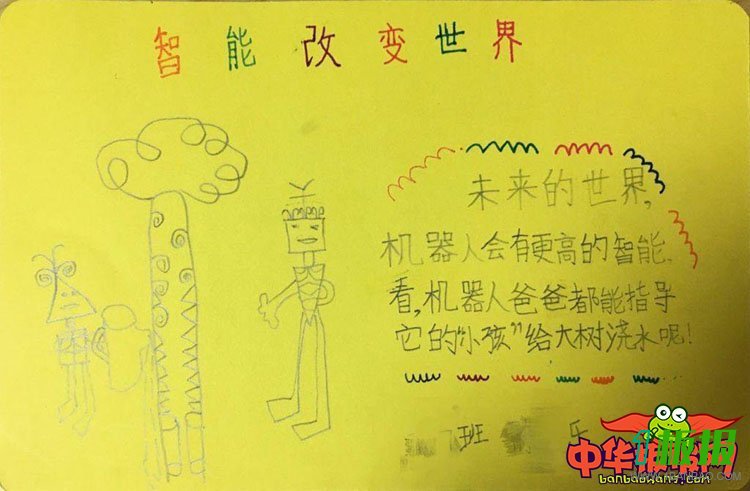 智能改变世界
未来的世界,
机器人会有更高的智能.
看,机器人爸爸都能指导
它的“小孩”给大树浇水呢!
班 乐
中华板报网
banbaowang.com